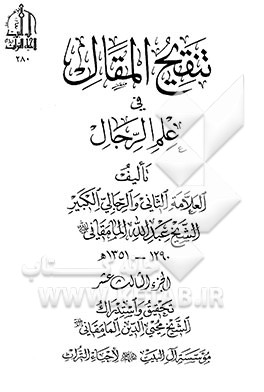 ٢٨٠
تنقيح المقال
في
علم الرجال
تأليف
العلامة الثاني والرجالي الكبير
الشيخ عبد الله المامقاني
١٢٩٠ — ١٣٥١ هـ
الجزء الثالث عشر
تحقيق واستدراك
الشيخ محيي الدين المامقاني
مؤسسة آل البيت لإحياء التراث